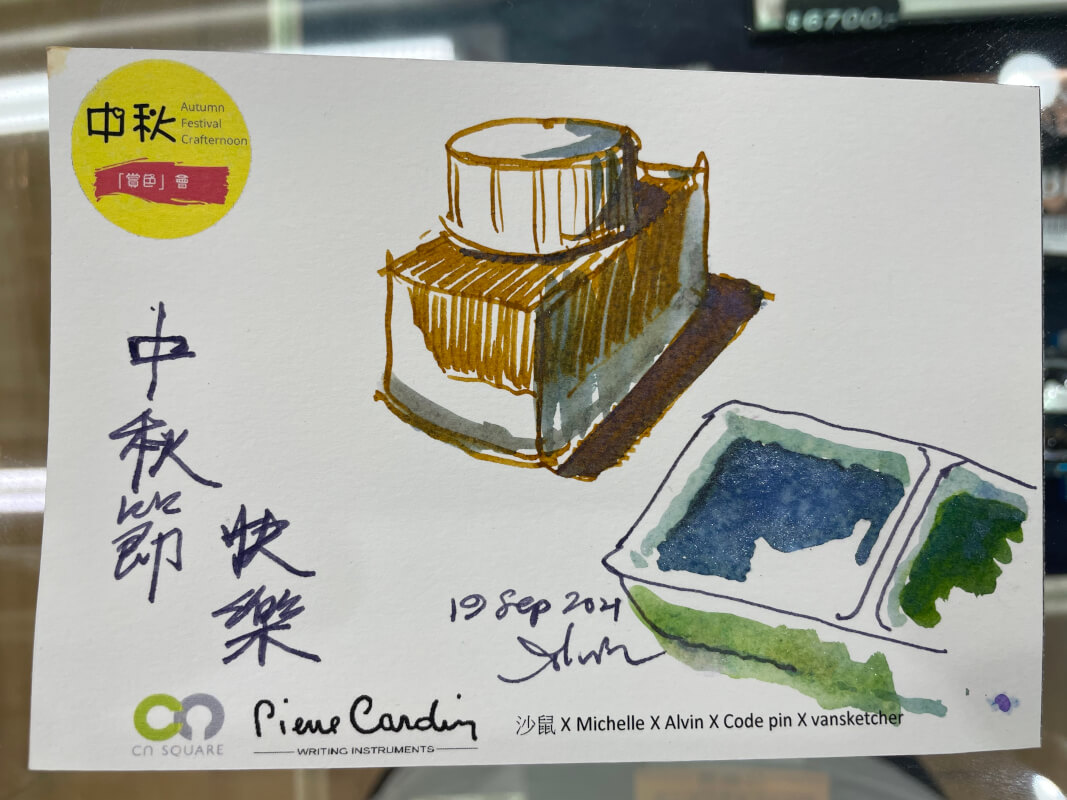 $6700.-
中秋
Autumn
Festival
Crafternoon
「賞色」會
中秋節
快樂
19 Sep 2021
Alvin
CN SQUARE
Pierre Cardin
WRITING INSTRUMENTS
沙鼠 X Michelle X Alvin X Code pin X vansketcher